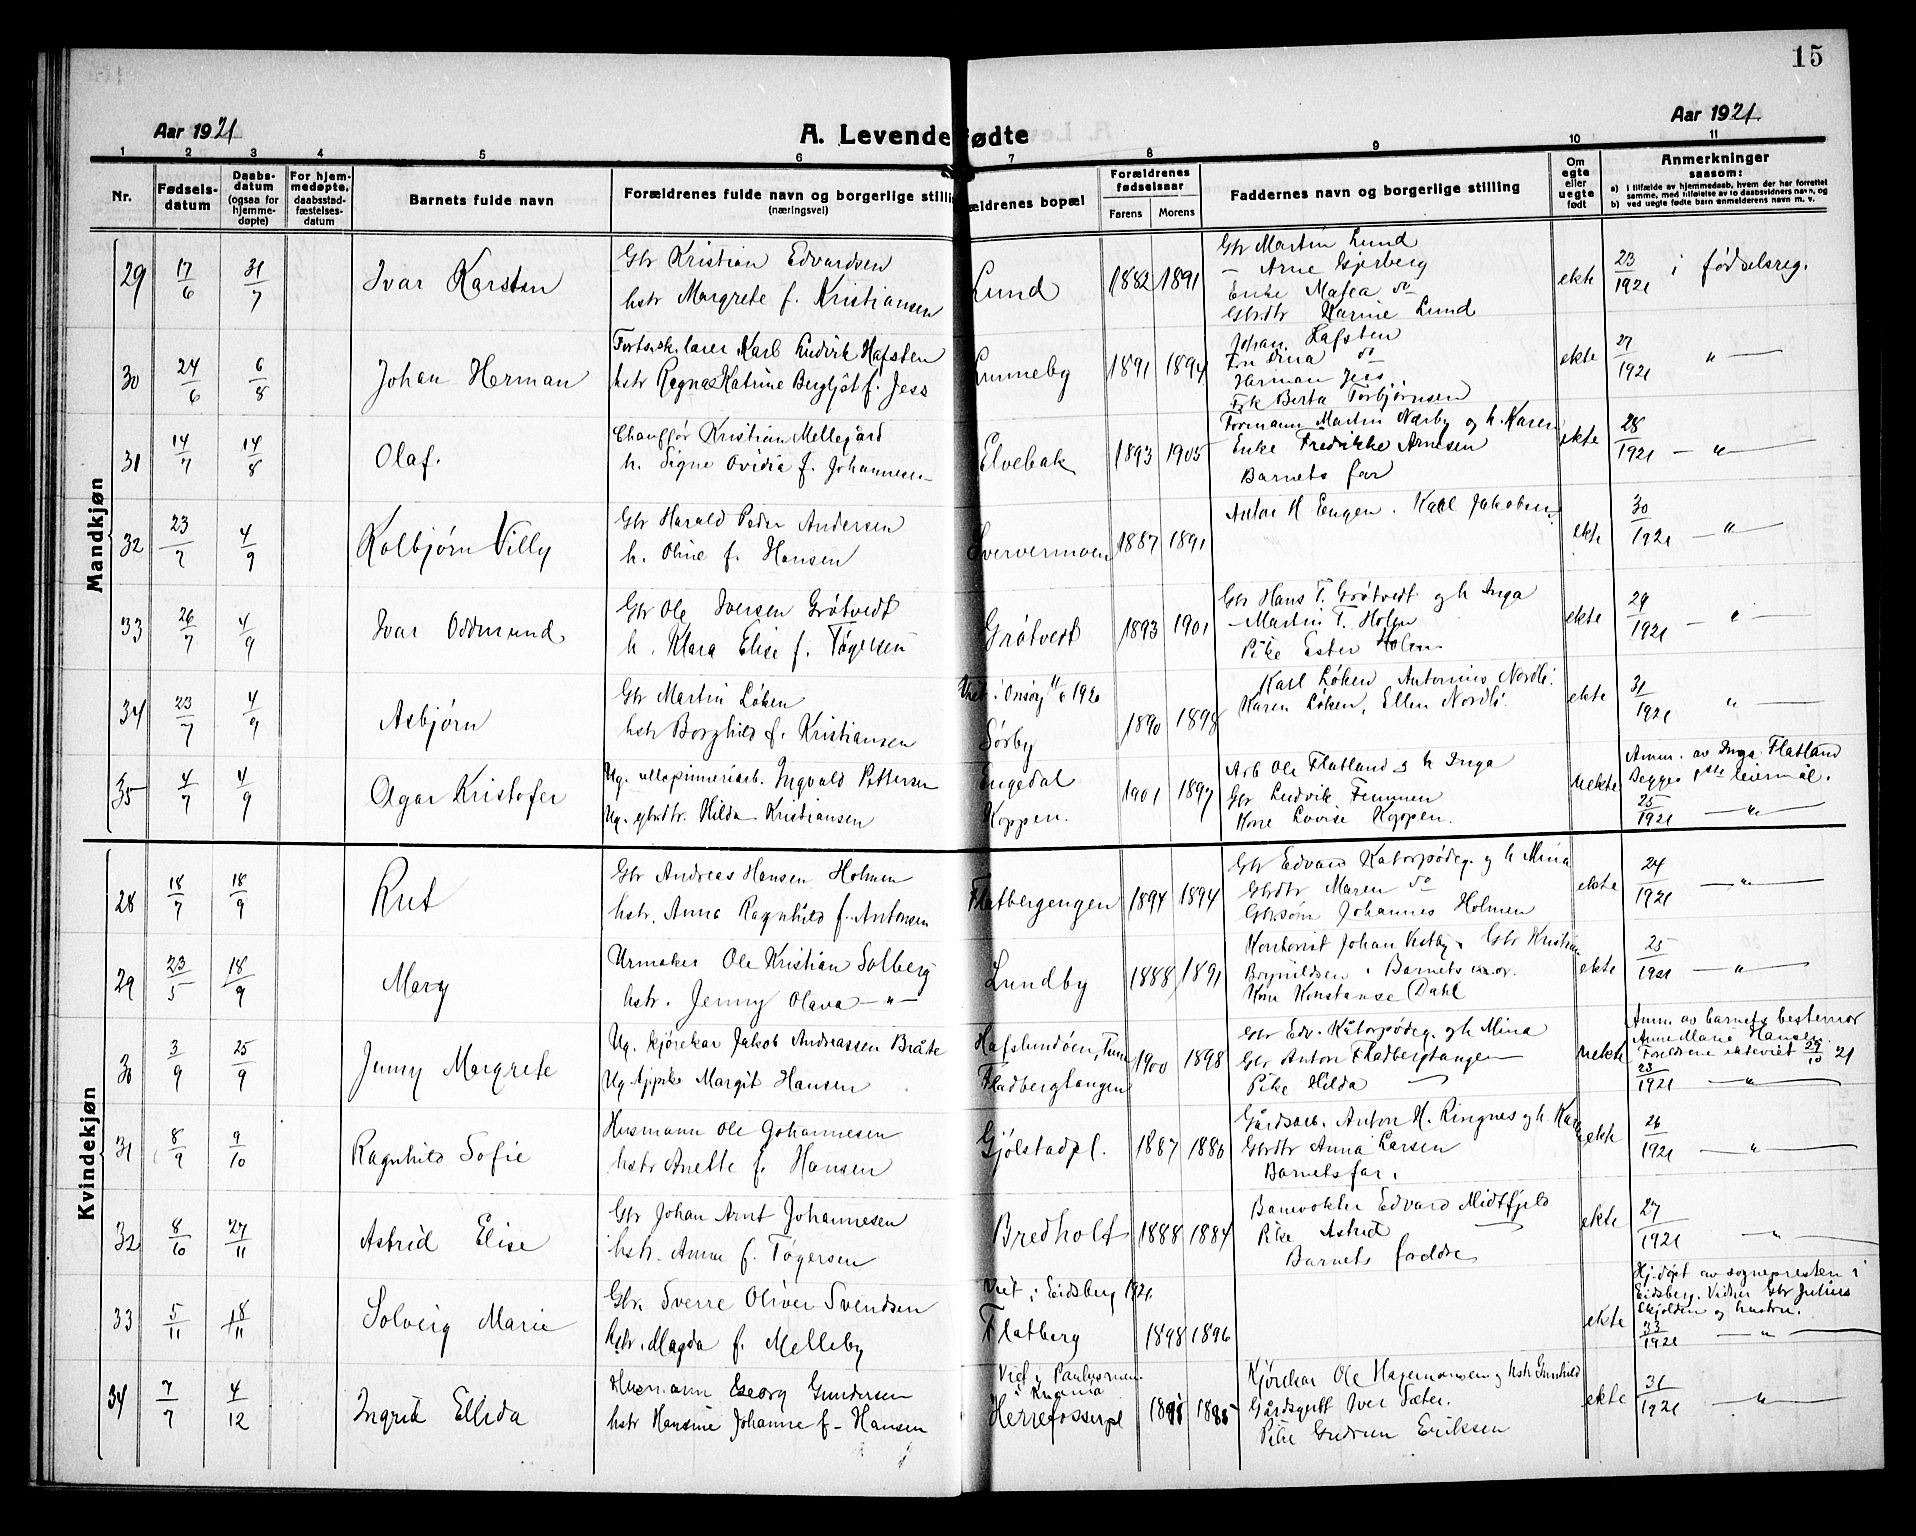 15
Aar 1921
A. Levendefødte
Aar 1921
1 2 3 4 5 6 7 8 9 10 11
Nr.
Fødsels-
datum
Daabs-
datum
(ogsaa for
hjemme-
døpte)
For hjem-
medøpte,
daabsstad-
fæstelses-
datum
Barnets fulde navn
Forældrenes fulde navn og borgerlige stilli
(næringsvei)
ældrenes bopæl
Forældrenes
fødselsaar
Farens Morens
Faddernes navn og borgerlige stilling
Om
egte
eller
uegte
født
Anmerkninger
saasom:
a) i tilfælde av hjemmedaab, hvem der har forrettet
samme, med tilføielse av to daabsvidners navn, og
b) ved uegte fødte barn anmelderens navn m. v.
Mandkjøn
29 17/6 31/7 Ivar Karsten
Gbr Kristian Edvardsen
hstr Margrete f. Kristiansen
Lund 1882 1891
Gbr Martin Lund
— Arne Gjerberg
Enke Matea do
Gbrdtr Karine Lund
ekte 23/1921 i fødselsreg.
30 24/6 6/8 Johan Herman
Fortsk.lærer Karl Ludvik Hafsten
hstr Ragna Katrine Bergljot f. Jess
Lunneby 1891 1894
Johan Hafsten
Fru Dina do
Herman Jess
Frk Berta Torbjørnsen
ekte 27/1921 — " —
31 14/7 14/8 Olaf.
Chauffør Kristian Mellegård
h. Signe Ovidia f. Johannesen
Elvebak 1893 1905
Formann Martin Nærby og h. Karen
Enke Fredrikke Arnesen
Barnets far
ekte 28/1921 — " —
32 23/7 4/9 Kolbjørn Villy
Gbr Harald Peder Andersen
h. Oline f. Hansen
Sververmoen 1887 1891
Anton H Engen. Karl Jakobsen.
ekte 30/1921 — " —
33 26/7 4/9 Ivar Oddmund
Gbr Ole Iversen Grøtvedt
h. Klara Elise f. Tøgersen
Grøtvedt 1893 1901
Gbr Hans T. Grøtvedt og h Inga
— Martin T. Holen
Pike Ester Holen
ekte 29/1921 — " —
34 23/7 4/9 Asbjørn
Gbr Martin Løken
hstr Borghild f. Kristiansen
Viet i Onsøy 11/6 1920
Sørby 1890 1898
Karl Løken, Antonius Nordli.
Karen Løken, Ellen Nordli.
ekte 31/1921 " —
35 4/7 4/9 Agar Kristofer
Ug. Ingvald Pettersen
Ug. gbrdtr. Hilda Kristiansen
Engedal
Koppen. 1901 1897
Arb Ole Flatland og h Inga
Gbr Ludvik Femmen
Kone Lovise Koppen.
uekte
Anm. av Inga Flatland
Begges 1ste leiermål.
25/1921 — " —
Kvindekjøn
28 18/7 18/9 Rut
Gbr Andreas Hansen Holmen
hstr. Anna Ragnhild f. Antonsen
Flatbergengen 1894 1894
Gbr Edvard Katorpødeg. og h Mina
Gbrdtr Maren do
Gbr.søn Johannes Holmen
ekte 24/1921 — " —
29 23/5 18/9 Mary
Urmaker Ole Kristian Solberg
hstr. Jenny Olava — " —
Lundby 1888 1891
Johan Vestby. Gbr Kristian
Brynildsen. Barnets mor.
Kone Konstanse Dahl
ekte 25/1921 — " —
30 3/9 25/9 Jenny Margrete
Ug. kjørekar Jakob Andreassen Bråte
Ug. Margit Hansen
Hafslundsøen, Tune
Fladbergtangen 1900 1898
Gbr Edv. Katorpødeg. og h Mina
Gbr Anton Fladbergtangen
Pike Hilda —
uekte
Anm. av barnets bestemor
Anne Marie Hansen.
Foreldrene ekteviet 29/10 21
23/1921 — " —
31 8/9 9/10 Ragnhild Sofie
Husmann Ole Johannesen
hstr Anette f. Hansen
Gjølstadpl. 1887 1886
Gårdsarb. Anton H. Ringnes og h Karen
Gbrdtr Anna Larsen
Barnets far.
ekte 26/1921 — " —
32 8/6 27/11 Astrid Elise
Gbr Johan Arnt Johannesen
hstr. Anna f. Tøgersen
Bredholt 1888 1884
Banevokter Edvard Midtfjeld
Pike Astrid —
Barnets foreldre
ekte 27/1921 — " —
33 5/11 18/11 Solveig Marie
Gbr. Sverre Oliver Svendsen
hstr. Magda f. Melleby
Viet i Eidsberg 1921.
Flatberg 1898 1896
ekte
Hj.døpt av sognepresten i
Eidsberg. Vidner Gbr Julius
Skjolden og hustru.
33/1921 — " —
34 7/7 4/12 Ingrid Ellida
Husmann Georg Gundersen
hstr Hansine Johanne f. Hansen
Viet i
Herrefosserpl
Kjørekar Ole Hagemannsen og hstr Gunhild
Gårdsgutt Iver Sæter.
Pike Gudrun Eriksen
ekte 31/1921 — " —